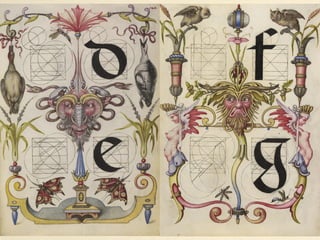 d
e
f
g